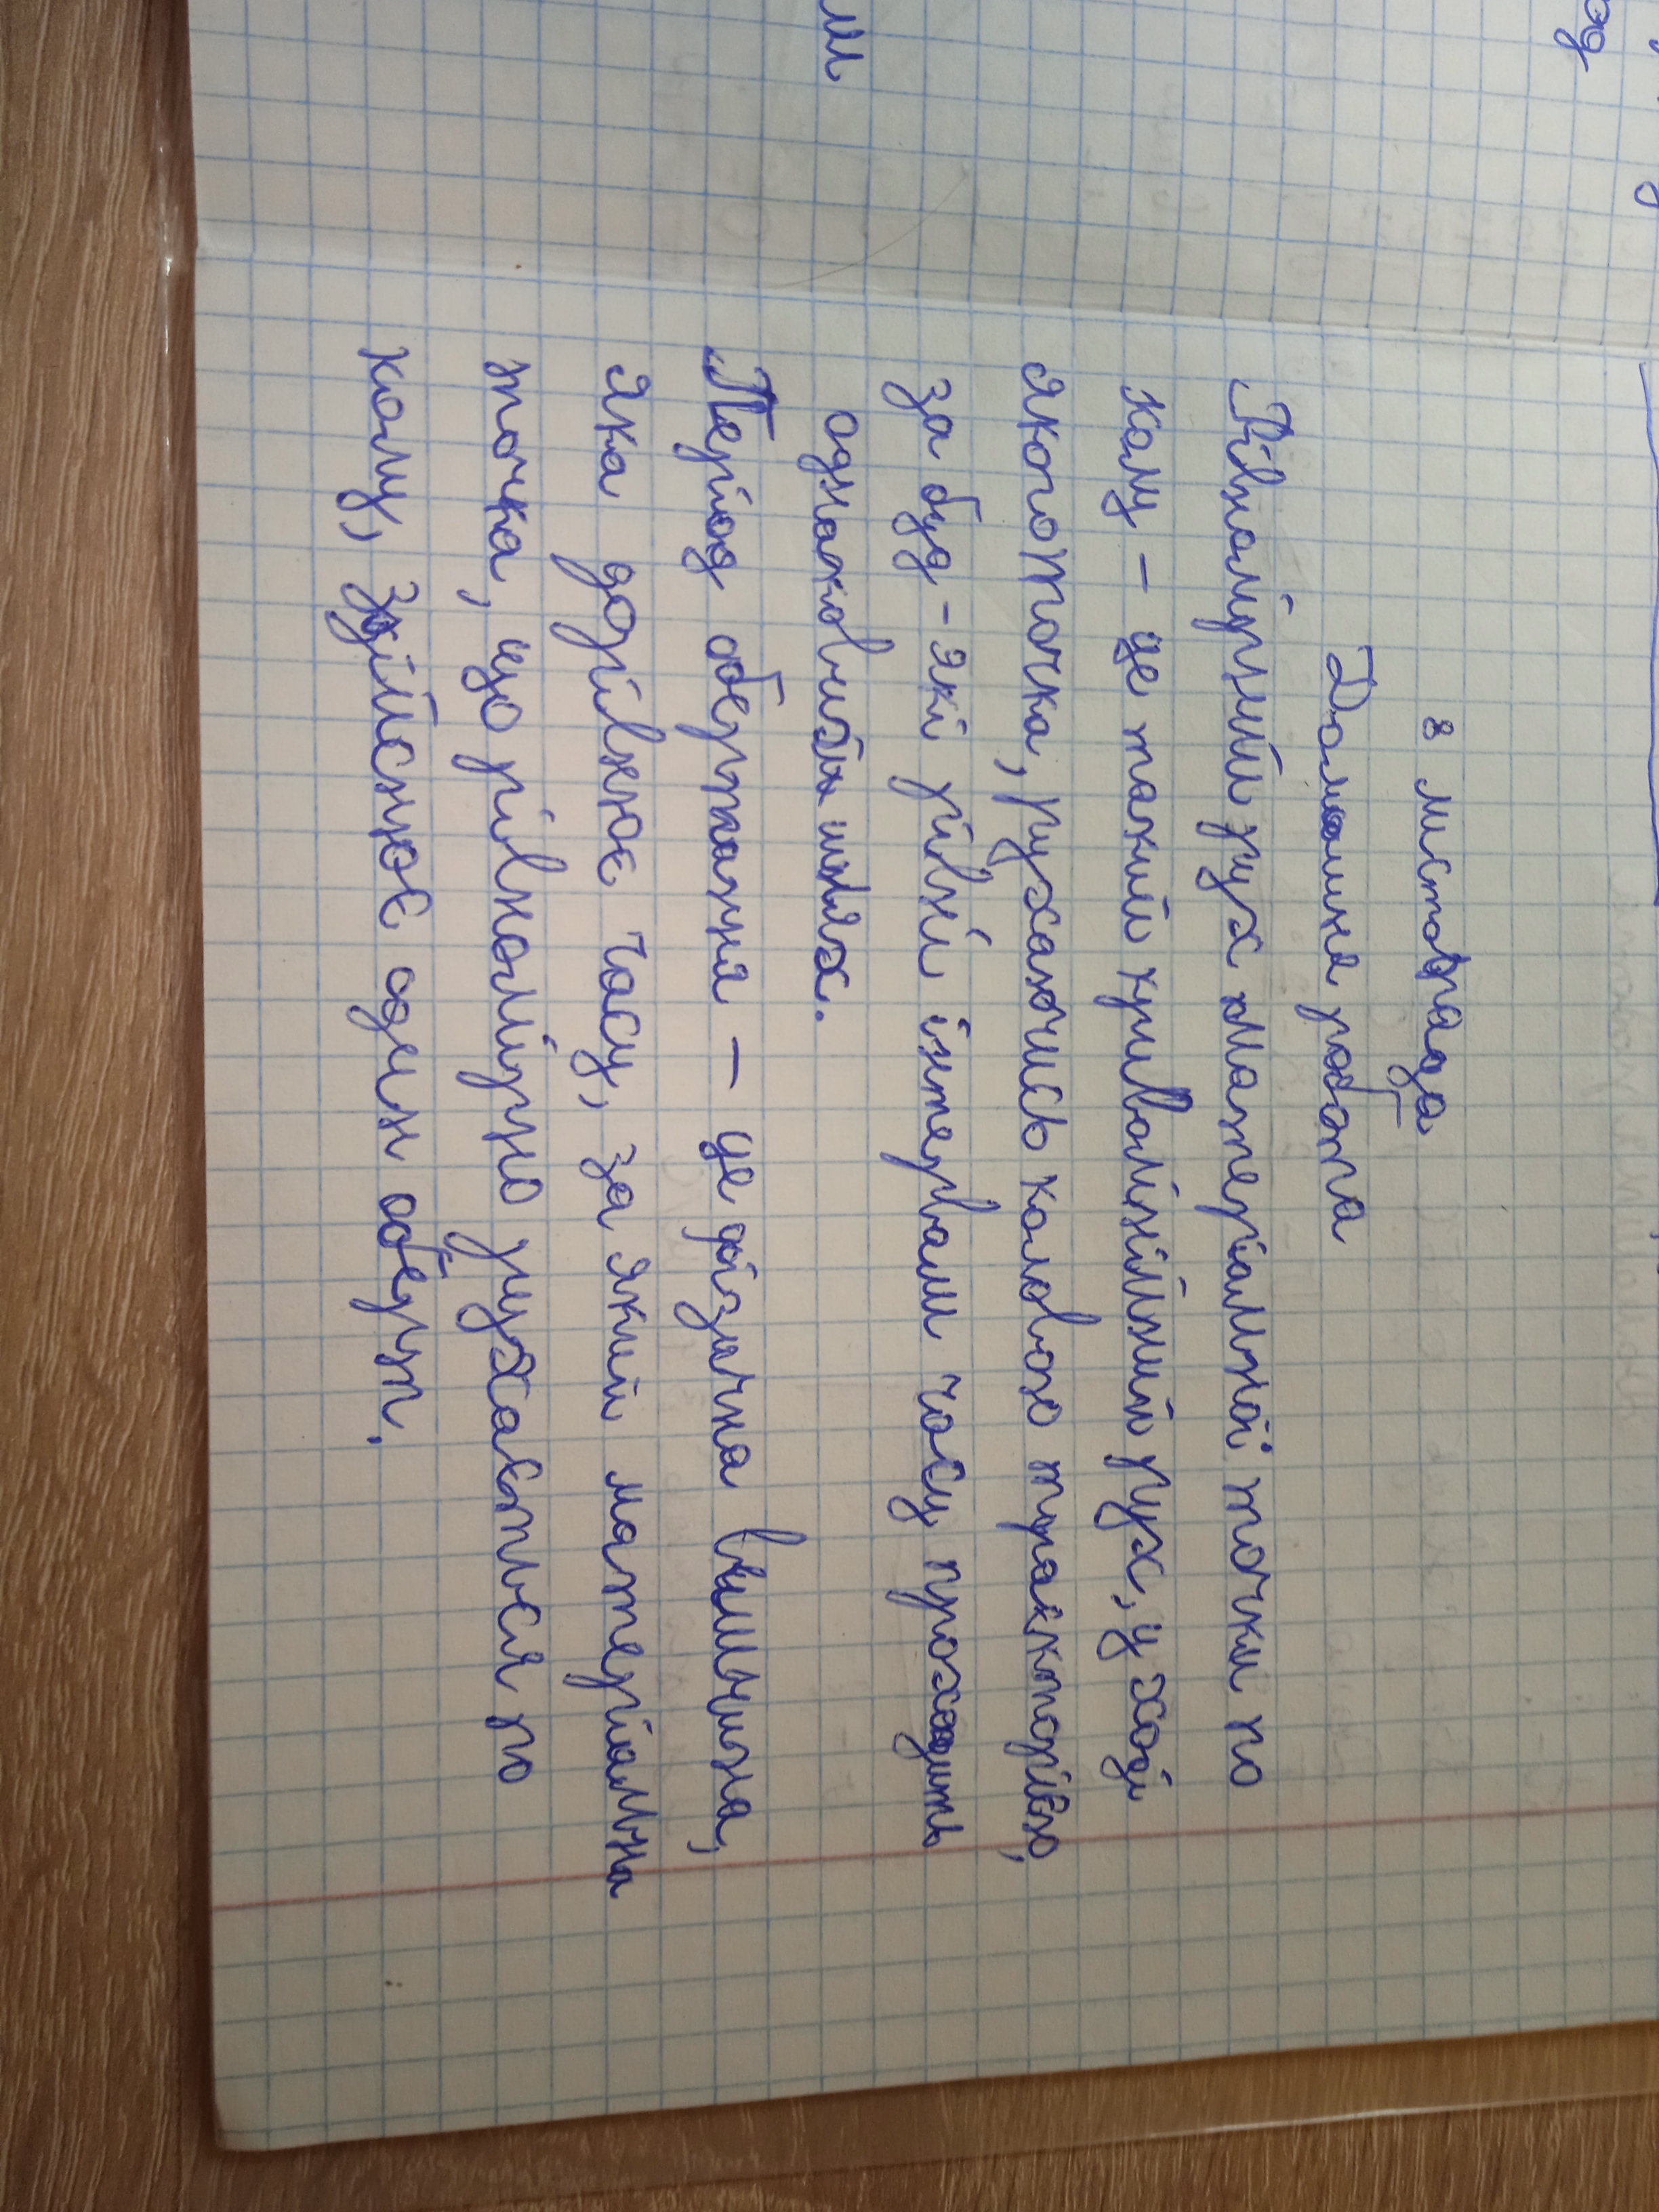 8 листопада
Домашня робота
Рівномірний рух матеріальної точки по
колу – це такий криволінійний рух, у ході
якого точка, рухаючись коловою траєкторією,
за буд-які рівні інтервали часу проходить
однаковий шлях.
Період обертання – це фізична величина,
яка дорівнює часу, за який матеріальна
точка, що рівномірно рухається по
колу, здійснює один оберт.